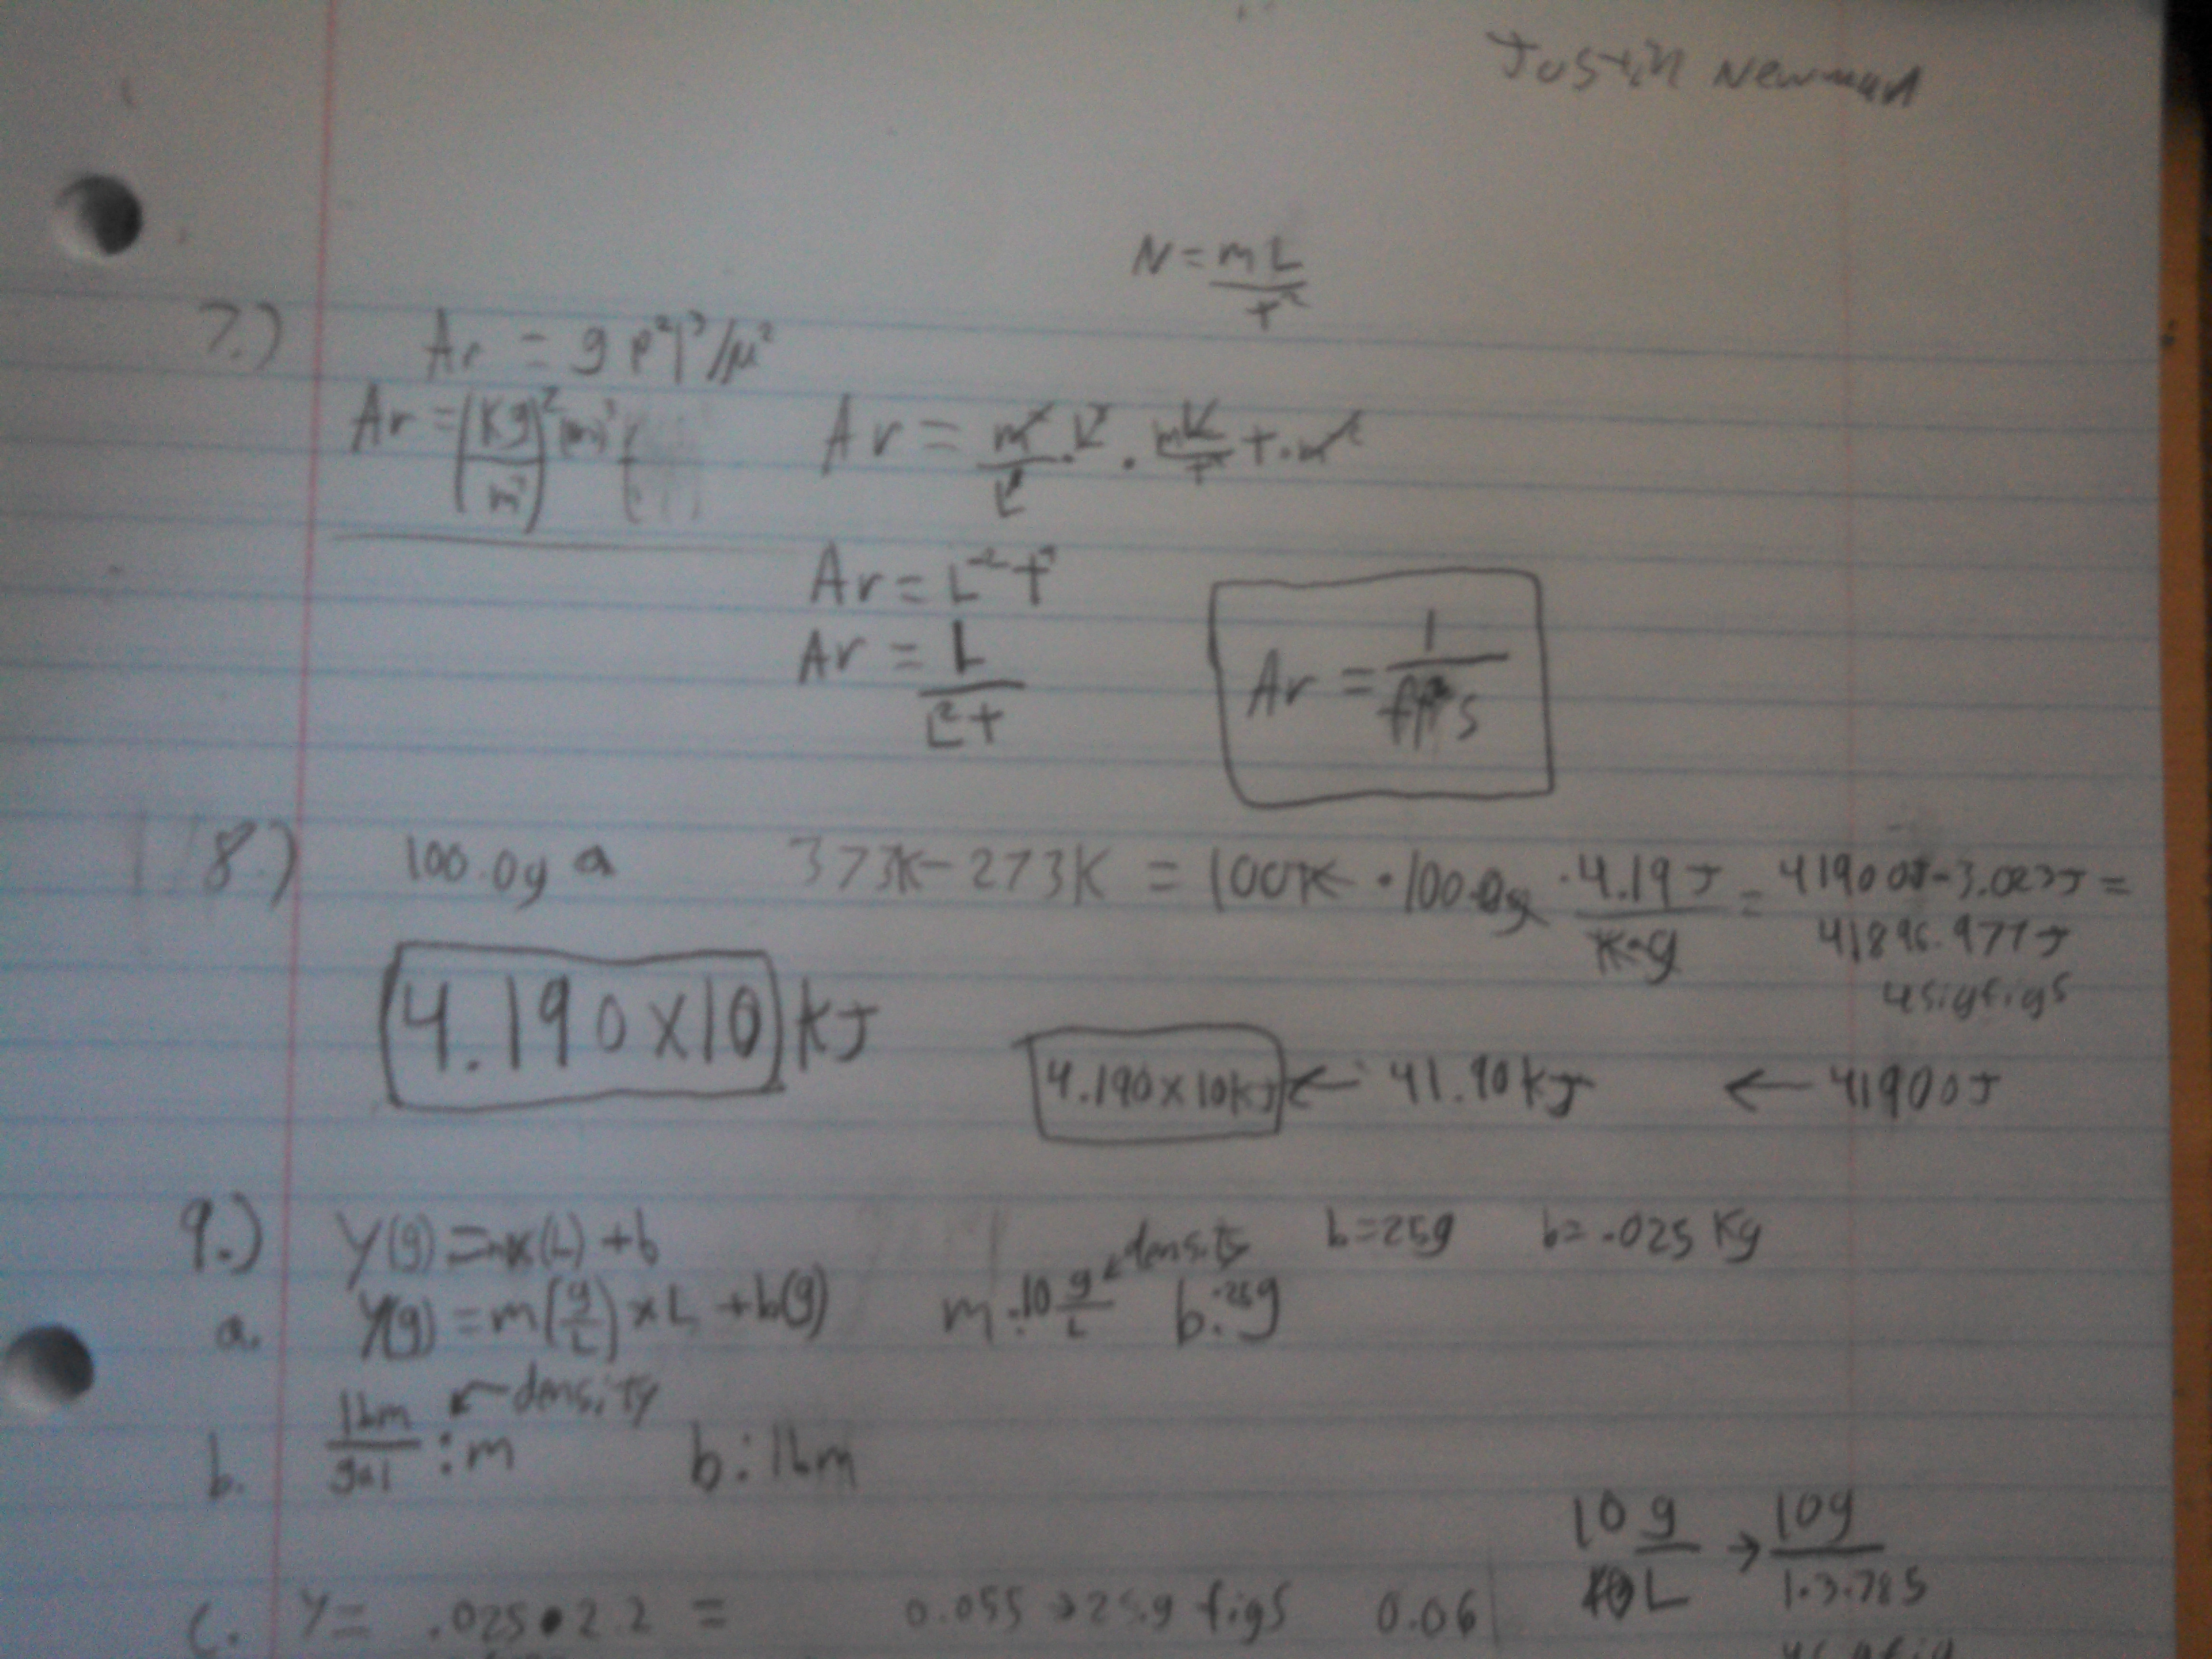 Justin Newman
N = mL/t²
7.) Ar = g ρ² l³/μ²
Ar = (kg/m³)² m³
Ar = L⁻² t⁻¹
Ar = L/L²t
Ar = 1/ft² s
8.) 100.0g a 373K - 273K = 100K · 100.0g · 4.19 J/K·g = 41900J - 3.023J =
41896.977J
4 sig figs
4.190 x 10 kJ
4.190 x 10 kJ ← 41.90 kJ ← 41900J
9.) y(g) = mx(L) + b b = 25g b = .025 Kg
a. y(g) = m(g/L) x L + b(g) m: 10 g/L ← density b: 25g
b. lbm/gal : m ← density b: lbm
10 g/L → 10g/1·3.785
c. y = .025 • 2.2 = 0.055 → 2 sig figs 0.06